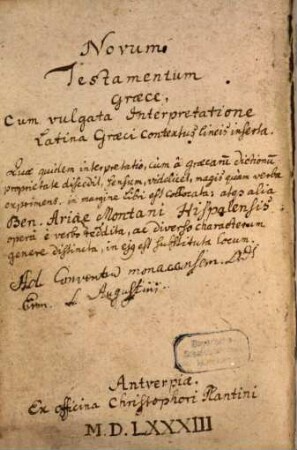 Novum
Testamentum
Græce,
Cum vulgata Interpretatione
Latina Græci contextus lineis inserta.
Quæ quidem interpretatio, cum à græcarū dictionū
proprietate discedit, sensum, videlicèt, magis quàm verba
exprimens, in margine libri est collocata; atqȝ alia
Ben. Ariæ Montani Hispalensis
opera è verbo reddita, ac diverso characterum
genere distincta, in ejȝ est substituta locum.
Ad Conventū monacensem
Erm. S Augustini.
Antverpiæ.
Ex officina Christophori Plantini
M.D.LXXXIII